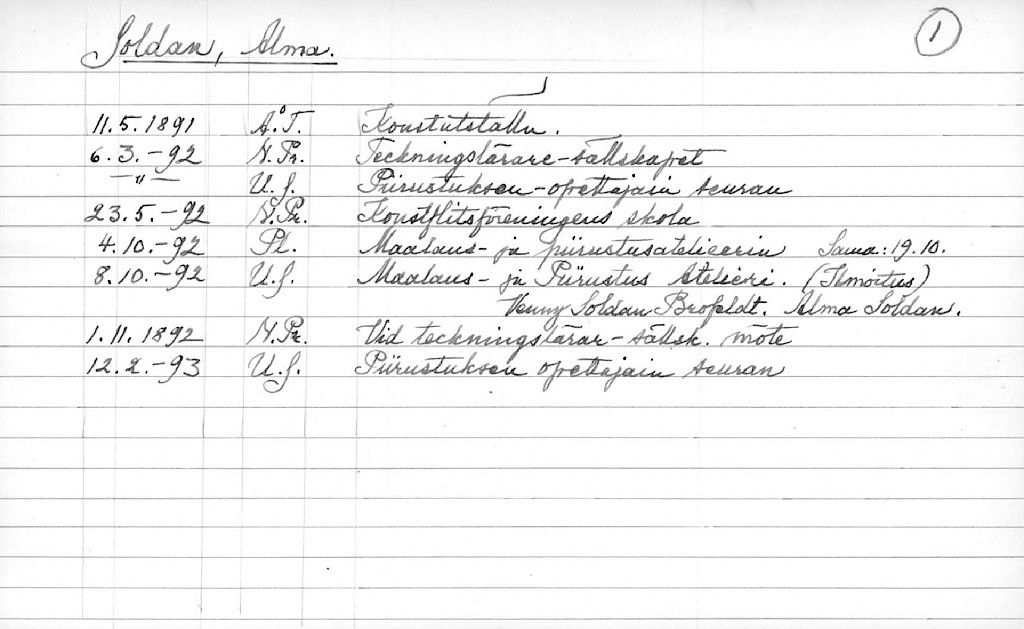 Soldan, Alma. 1
11.5.1891 Å.T. Konstutställn.
6.3.-92 N.Pr. Teckningslärare-sällskapet
—"— U.S. Piirustuksen-opettajain seuran
23.5.-92 N.Pr. Konstflitsföreningens skola
4.10.-92 Pl. Maalaus- ja piirustusatelieerin Sama: 19.10.
8.10.-92 U.S. Maalaus- ja Piirustus Atelieri. (Ilmoitus)
Venny Soldan Brofeldt. Alma Soldan.
1.11.1892 N.Pr. Vid teckningslärar-sällsk. möte
12.2.-93 U.S. Piirustuksen opettajain seuran